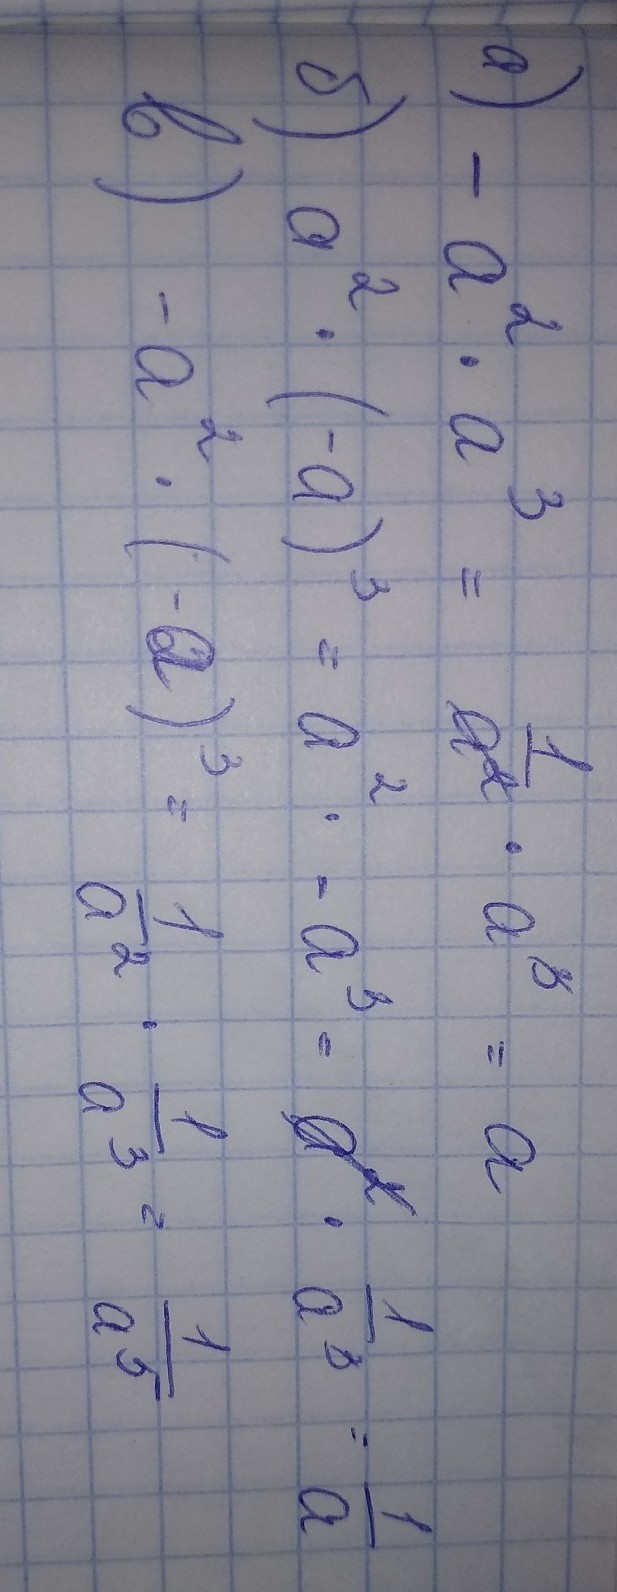 а) -a² · a³ = 1/a² · a³ = a
б) a² · (-a)³ = a² · -a³ = a² · 1/a³ = 1/a
в) -a² · (-a)³ = 1/a² · 1/a³ = 1/a⁵